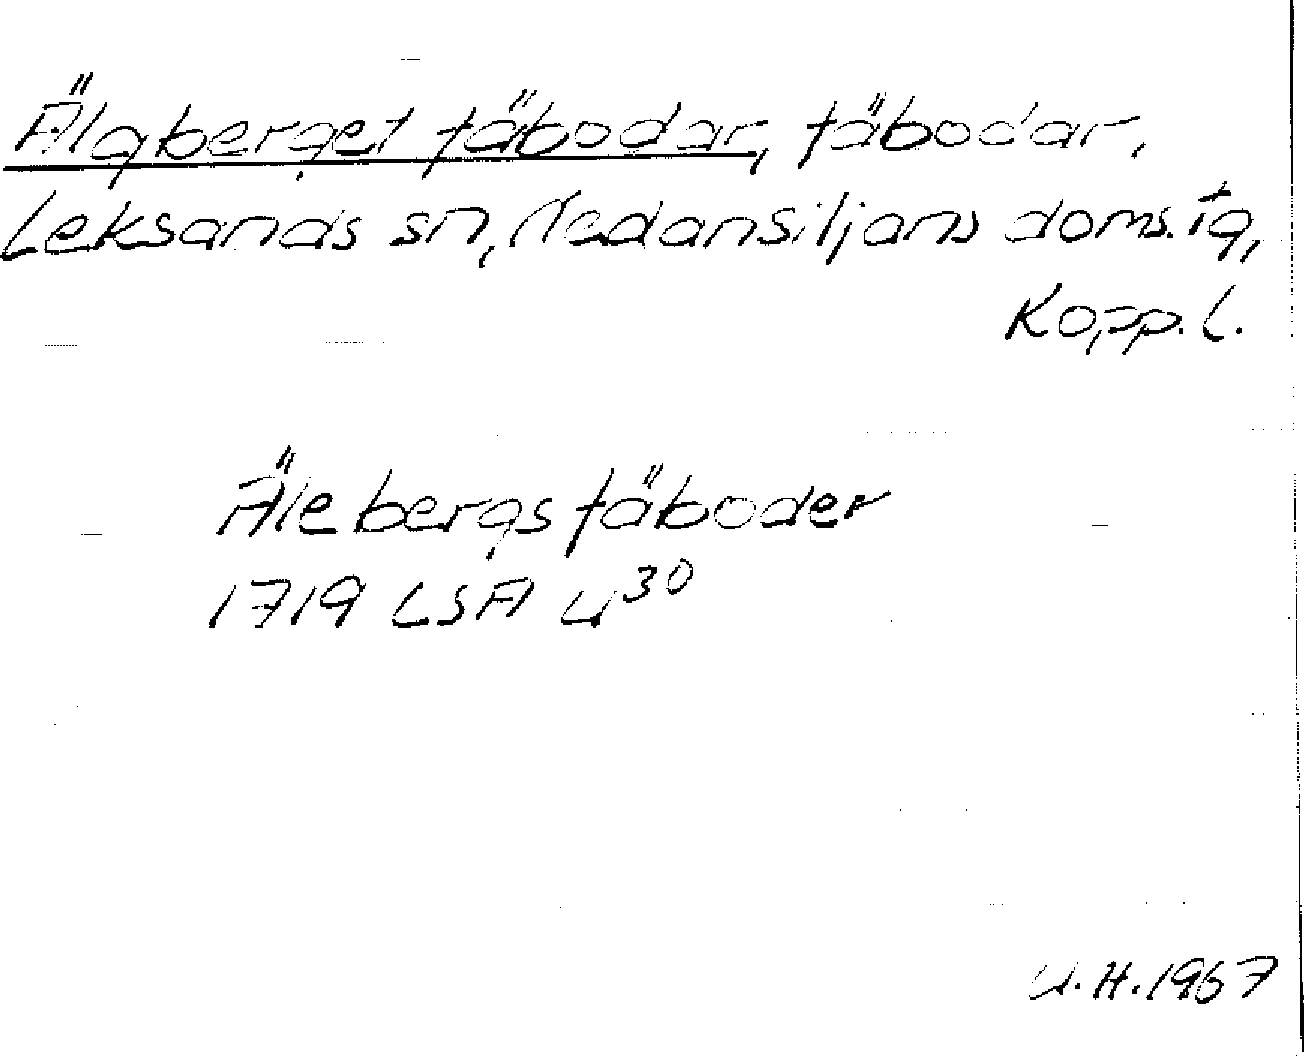 Älgberget fäbodar, fäbodar,
Leksands sn, Nedansiljans doms. tg,
Kopp. l.
Älebergs fäboder
1719 LSA U³⁰
U.H. 1967